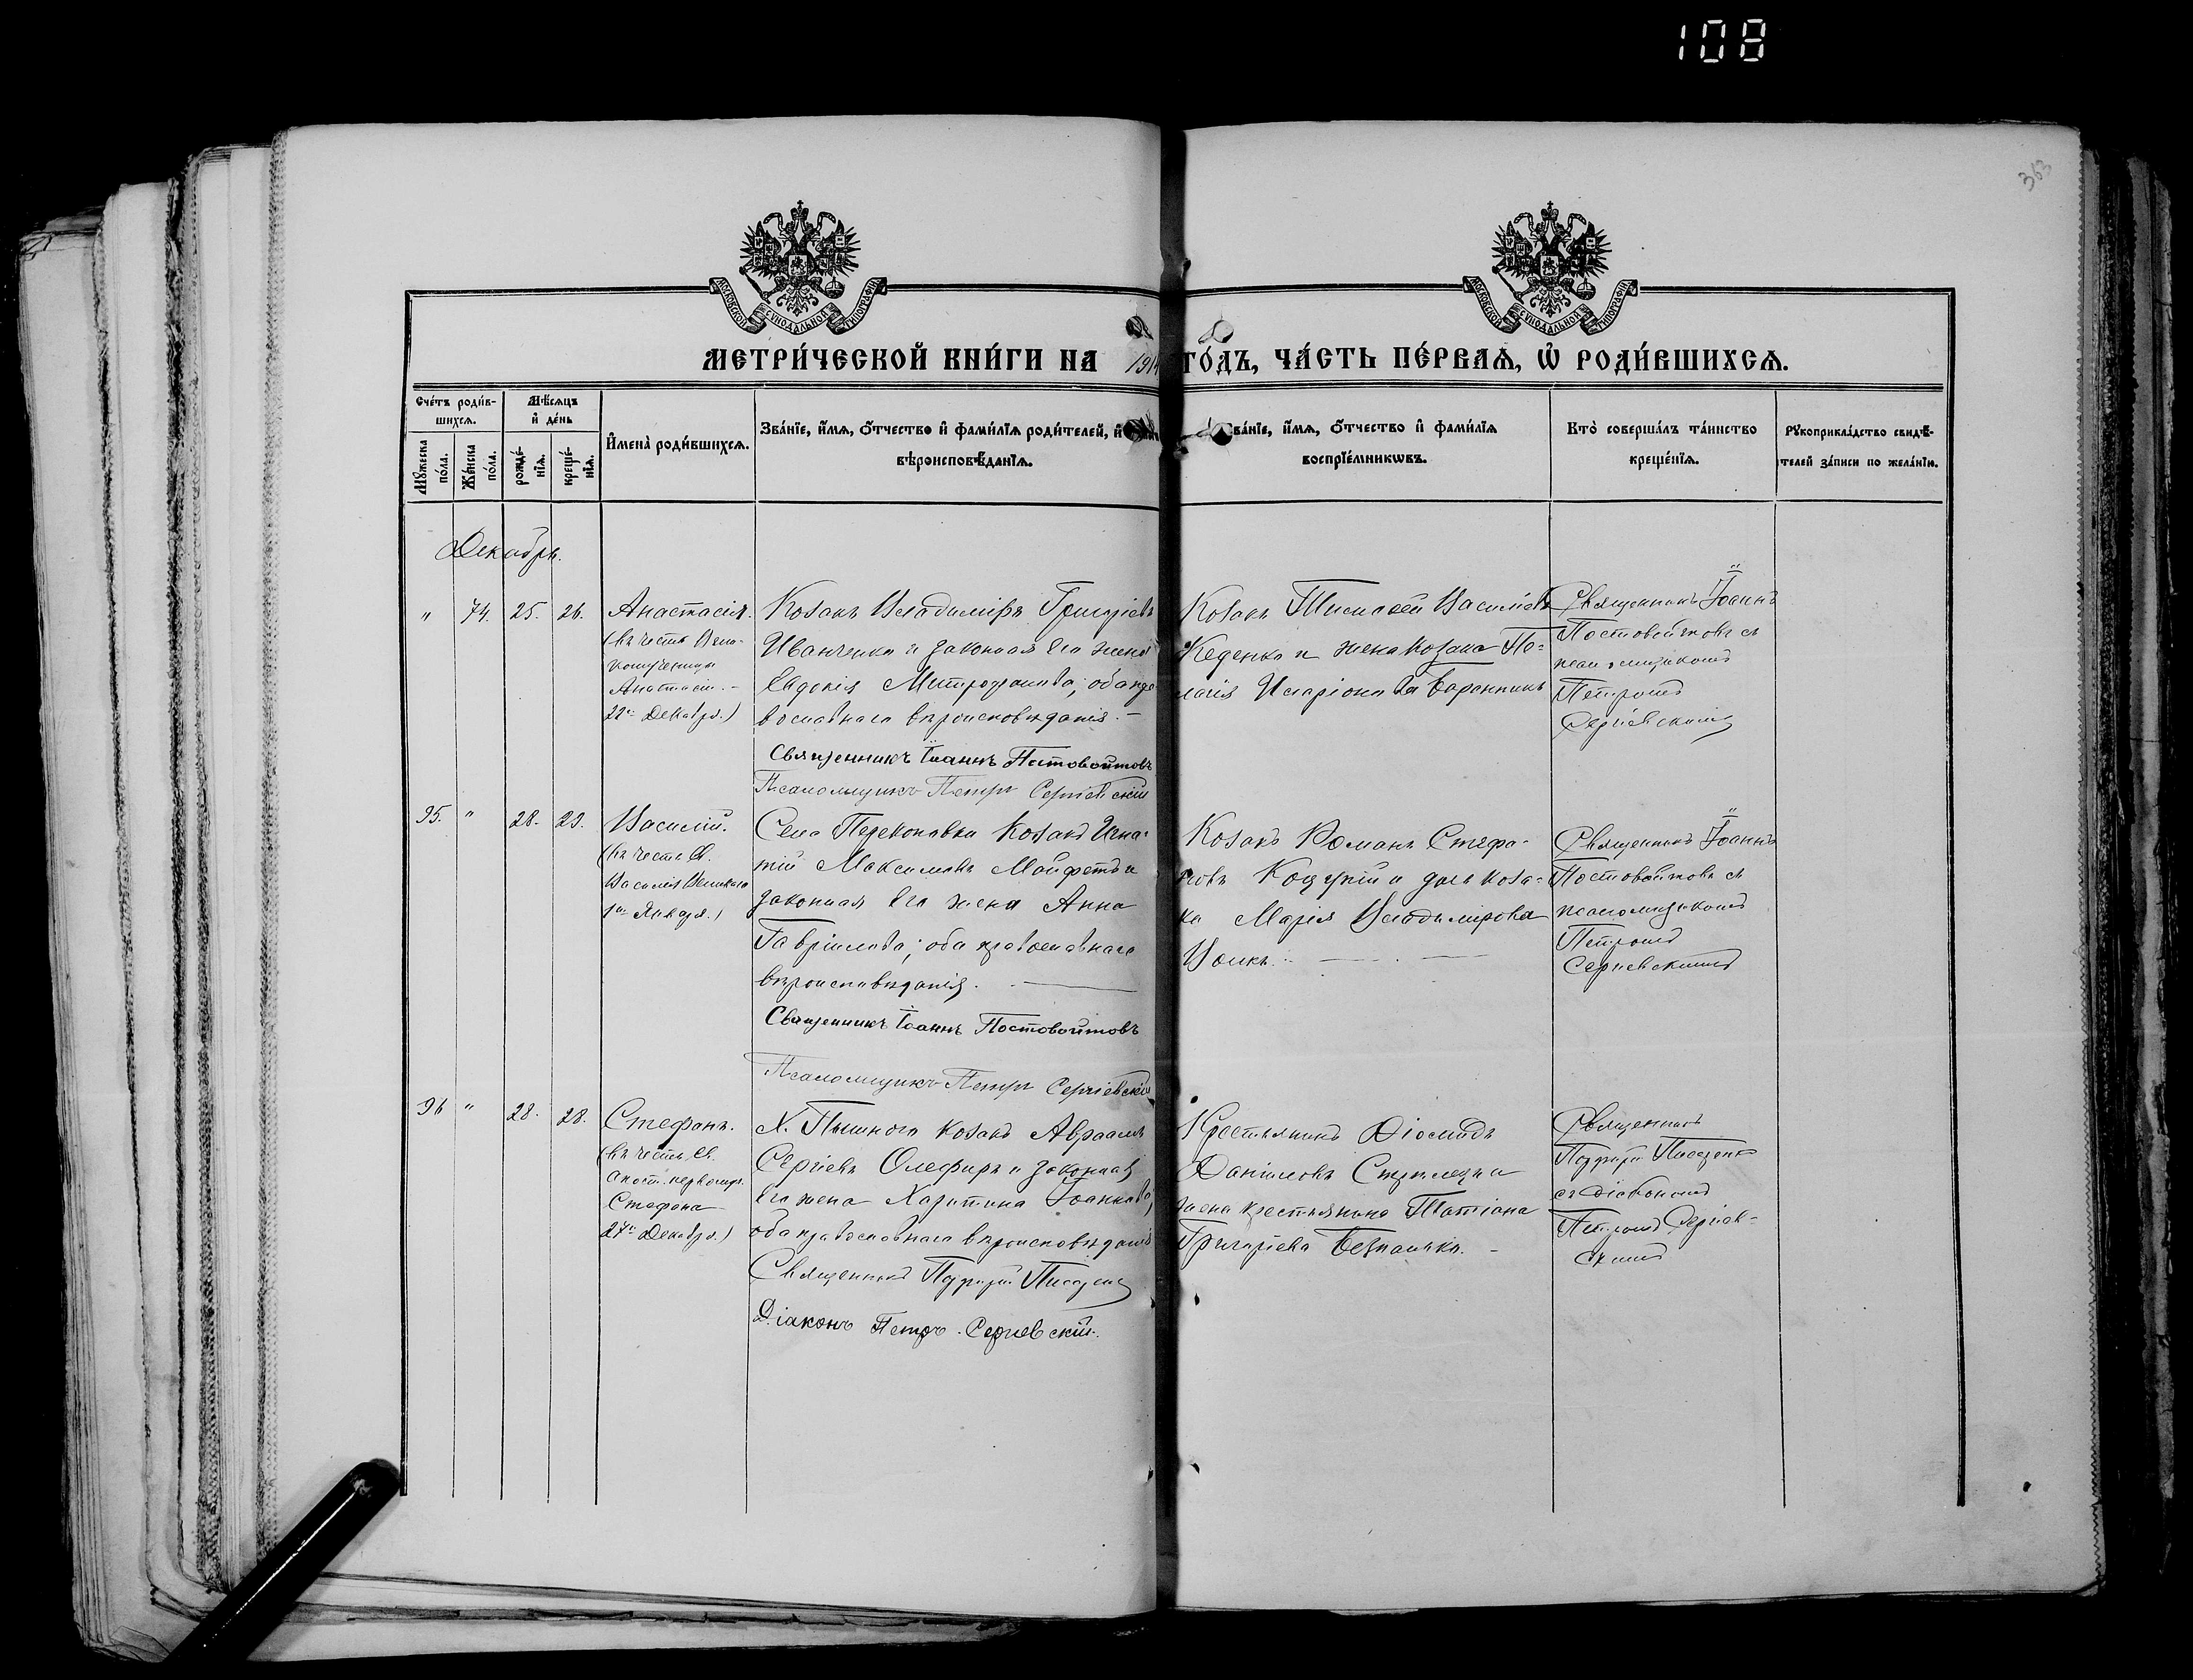 108
363
МОСКОВСКОЙ СѴНОДАЛЬНОЙ ТИПОГРАФІИ
МОСКОВСКОЙ СѴНОДАЛЬНОЙ ТИПОГРАФІИ
МЕТРИ́ЧЕСКОЙ КНИ́ГИ НА 191
ГО́ДЪ, ЧА́СТЬ ПЕ́РВАЯ, Ѡ҆ РОДИ́ВШИХСЯ.
Сче́тъ роди́в-
шихся.
Мꙋ́жеска по́ла.
Же́нска по́ла.
Мѣ́сяцъ
и҆ де́нь
рожде́-
нїя.
креще́-
нїя.
И҆мена̀ роди́вшихся.
Зва́нїе, и҆́мя, ѻ҆́тчество и҆ фами́лїя роди́телей, и҆
вѣроисповѣ́данїя.
Зва́нїе, и҆́мя, ѻ҆́тчество и҆ фами́лїя
воспрїе́мникѡвъ.
Кто̀ соверша́лъ та́инство
креще́нїя.
Рꙋкоприкла́дство свидѣ́-
телей за́писи по жела́нїю.
Декабрь.
" 74. 25. 26. Анастасія.
(въ честь Вели-
комученицы
Анастасіи. –
22го Декабря.)
Козакъ Владиміръ Григоріевъ
Иванченко и законная его жена
Евдокія Митрофанова; оба пра-
вославнаго вѣроисповѣданія. –
Священникъ Іоаннъ Постовойтовъ
Псаломщикъ Петръ Сергіевскій
Козакъ Тимофей Васильевъ
Кеденко и жена козака Пе-
лагія Иларіонова Баранникъ
Священникъ Іоаннъ
Постовойтовъ съ
псаломщикомъ
Петромъ
Сергіевскимъ
95. " 28. 29. Василій.
(въ честь Св.
Василія Великаго
1го Января.)
Села Перекоповки Козакъ Игна-
тій Максимовъ Майфетъ и
законная его жена Анна
Гавріилова; оба православнаго
вѣроисповѣданія.
Священникъ Іоаннъ Постовойтовъ
Псаломщикъ Петръ Сергіевскій
Козакъ Романъ Стефа-
новъ и дочь коза-
ка Марія Владимірова
Вовкъ.
Священникъ Іоаннъ
Постовойтовъ съ
псаломщикомъ
Петромъ
Сергіевскимъ
96 " 28. 28. Стефанъ.
(въ честь Св.
апост. первомуч.
Стефана
27го Декабря.)
Х. Козакъ Авраамъ
Сергіевъ Олефиръ и законная
его жена Харитина Іоаннова,
оба православнаго вѣроисповѣданія
Священникъ
Діаконъ Петръ Сергіевскій.
Крестьянинъ Діомидъ
Даніиловъ и
жена крестьянина Татіана
Григоріева
Священникъ
съ діакономъ
Петромъ Сергіев-
скимъ